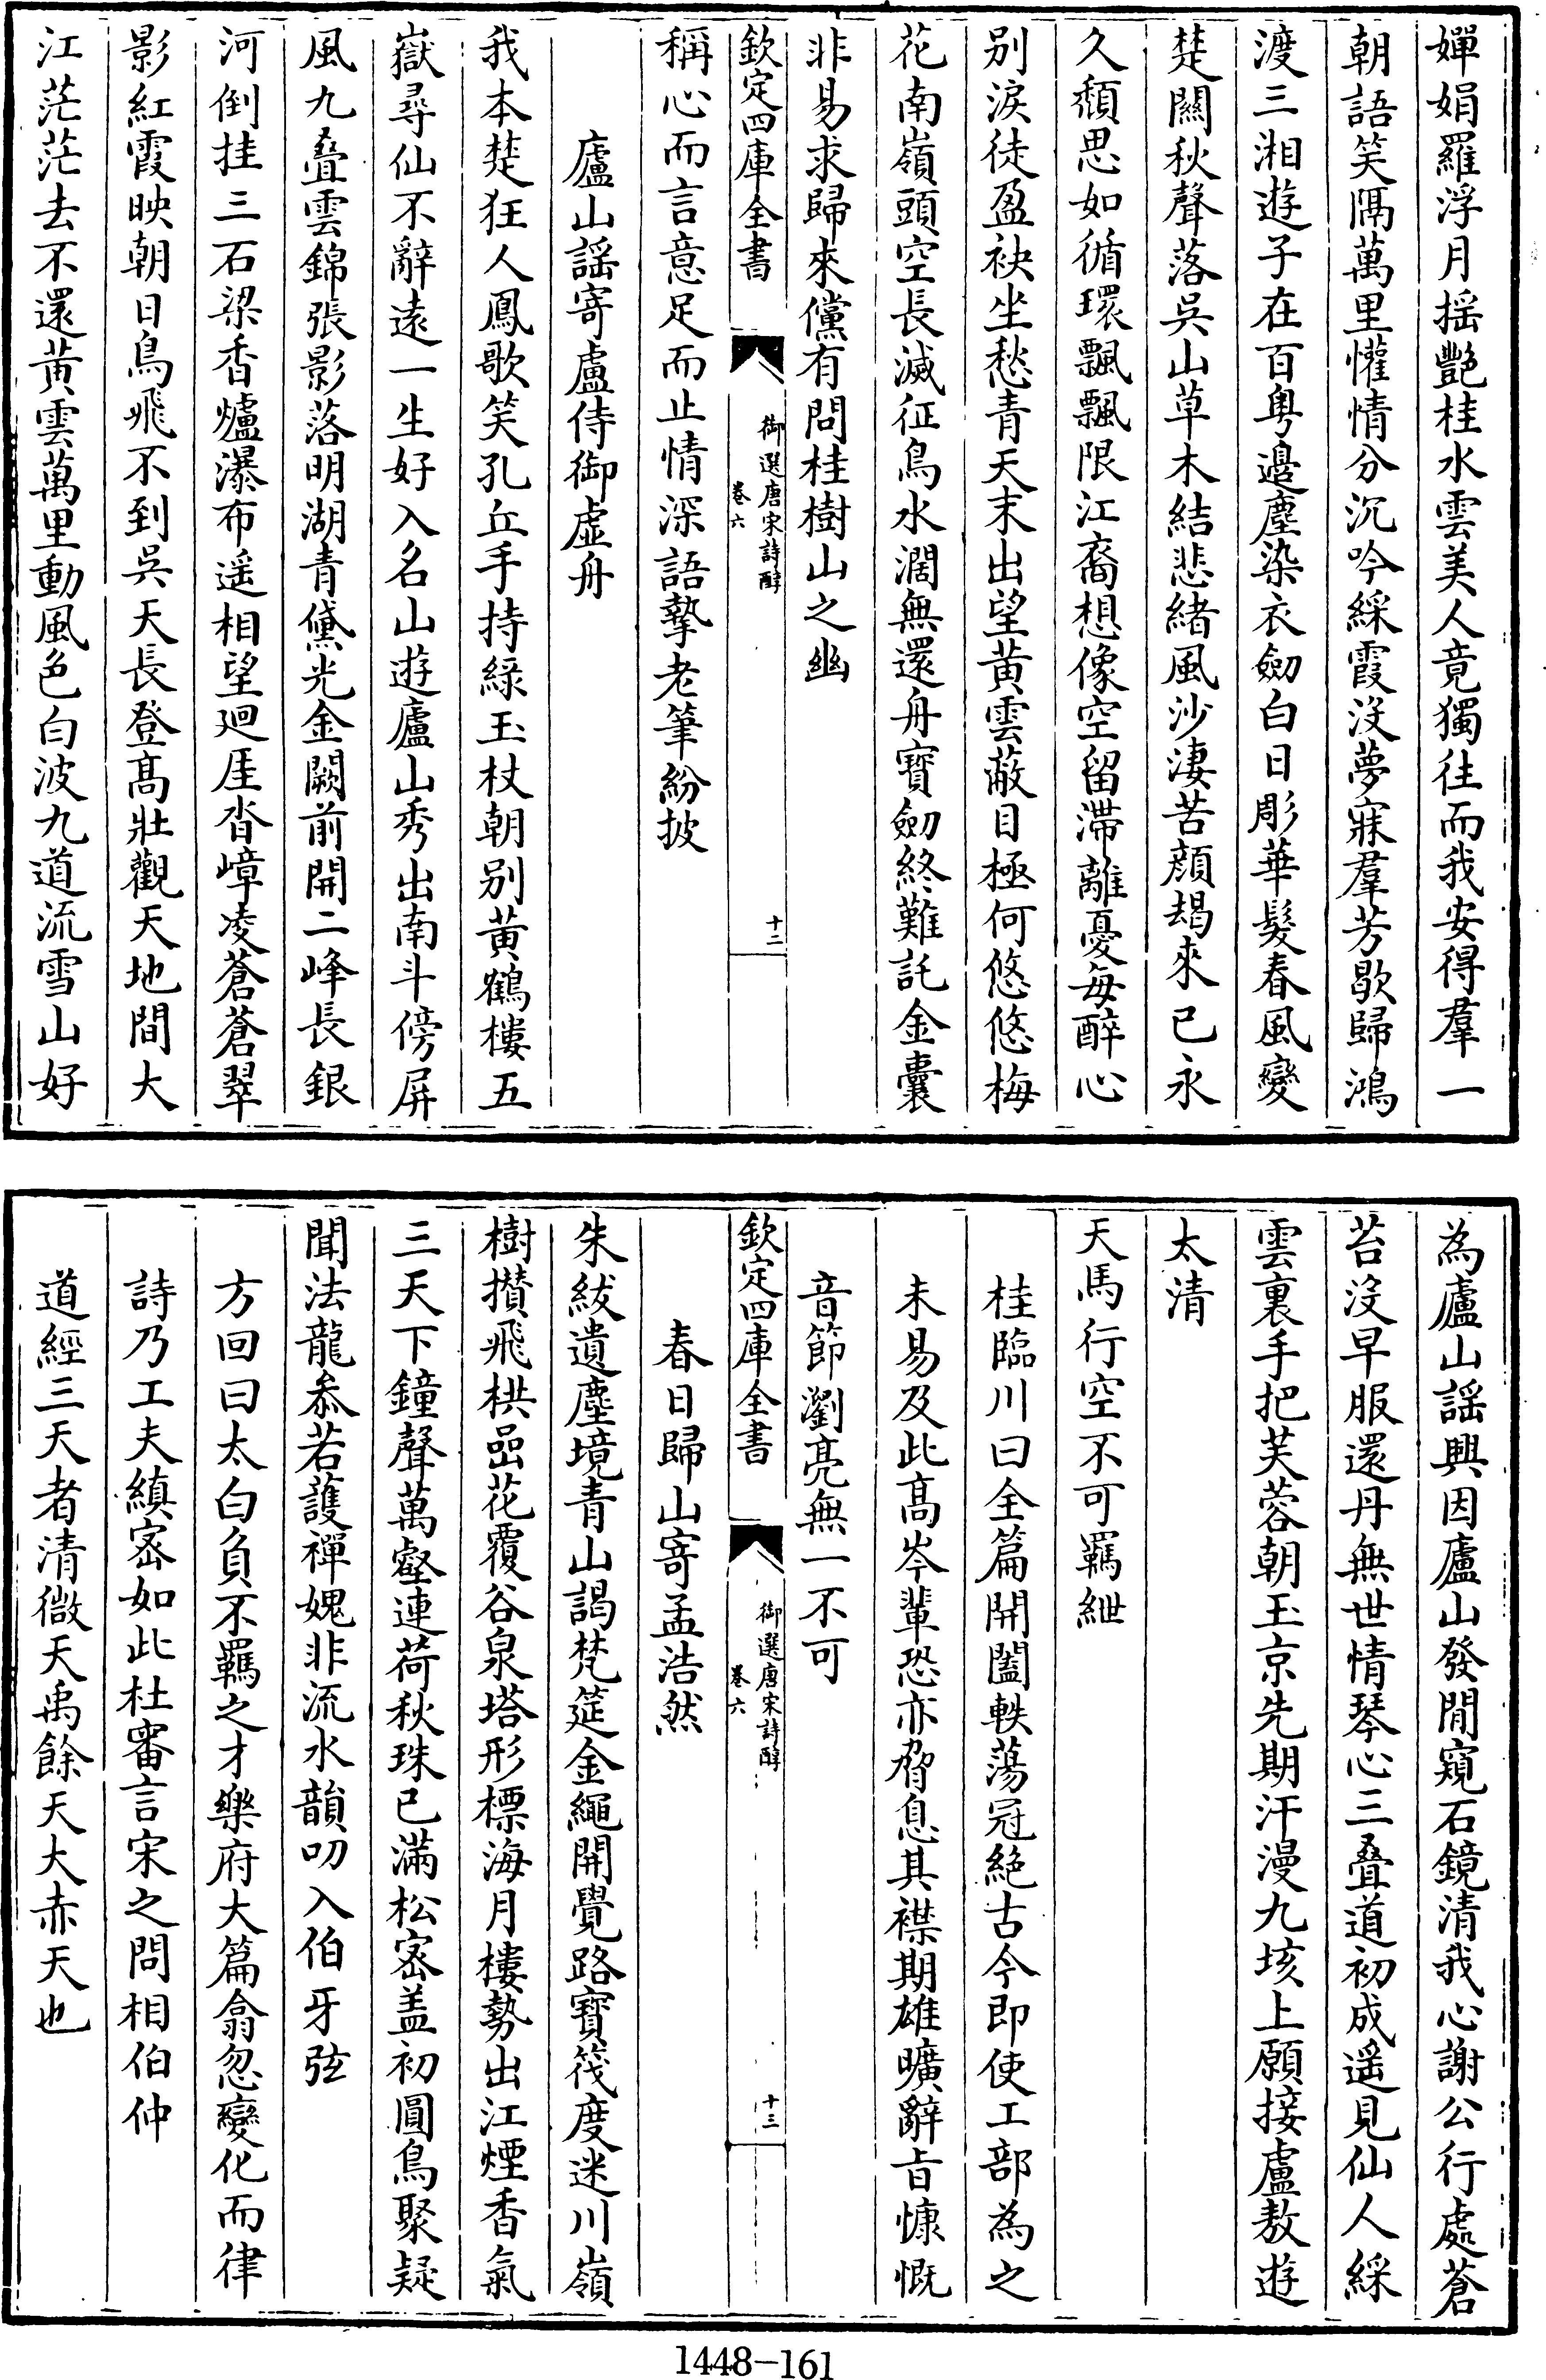 嬋娟羅浮月揺艷桂水雲美人竟獨往而我安得羣一
朝語笑隅萬里懽情分沉吟綵霞没夢寐羣芳歇歸鴻
渡三湘遊子在百粤邉塵染衣劒白日彫華髮春風變
楚關秋聲落吳山草木結悲緒風沙淒苦顔朅來已永
久頽思如循環飄飄限江裔想像空留滯離憂每醉心
别淚徒盈袂坐愁青天末出望黄雲蔽目極何悠悠梅
花南嶺頭空長滅征鳥水濶無還舟寳劒終難託金囊
非易求歸來儻有問桂樹山之幽
欽定四庫全書
御選唐宋詩醇
卷六
十二
稱心而言意足而止情深語摯老筆紛披
廬山謡寄盧侍御虚舟
我本楚狂人鳳歌笑孔丘手持緑玉杖朝别黄鶴樓五
嶽尋仙不辭遠一生好入名山遊廬山秀出南斗傍屏
風九叠雲錦張影落明湖青黛光金闕前開二峰長銀
河倒挂三石梁香爐瀑布遥相望廻厓沓嶂凌蒼蒼翠
影紅霞映朝日鳥飛不到吳天長登髙壯觀天地間大
江茫茫去不還黄雲萬里動風色白波九道流雪山好
為廬山謡興因廬山發閒窺石鏡清我心謝公行處蒼
苔没早服還丹無世情琴心三叠道初成遥見仙人綵
雲裏手把芙蓉朝玉京先期汗漫九垓上願接盧敖遊
太清
天馬行空不可羈紲
桂臨川曰全篇開闔軼蕩冠絶古今即使工部為之
未易及此髙岑輩恐亦脅息其襟期雄曠辭旨慷慨
音節瀏亮無一不可
欽定四庫全書
御選唐宋詩醇
卷六
十三
春日歸山寄孟浩然
朱紱遺塵境青山謁梵筵金繩開覺路寳筏度迷川嶺
樹攅飛栱嵒花覆谷泉塔形標海月樓勢出江煙香氣
三天下鐘聲萬壑連荷秋珠已滿松宻盖初圓鳥聚疑
聞法龍叅若護禪媿非流水韻叨入伯牙弦
方回曰太白負不羈之才樂府大篇翕忽變化而律
詩乃工夫縝宻如此杜審言宋之問相伯仲
道經三天者清微天禹餘天大赤天也
1448-161